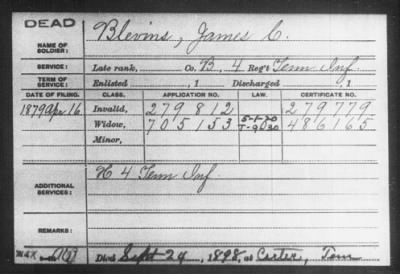 DEAD
NAME OF SOLDIER:
Blevins, James C.
SERVICE:
Late rank, Co. B, 4 Reg't Tenn Inf.
TERM OF SERVICE:
Enlisted , 1 Discharged , 1
DATE OF FILING. CLASS. APPLICATION NO. LAW. CERTIFICATE NO.
1879 Apr 16 Invalid, 279812 279779
Widow, 705153 486165
Minor,
ADDITIONAL SERVICES:
H 4 Tenn Inf.
REMARKS:
Died Sept 29, 1898, at Carter, Tenn